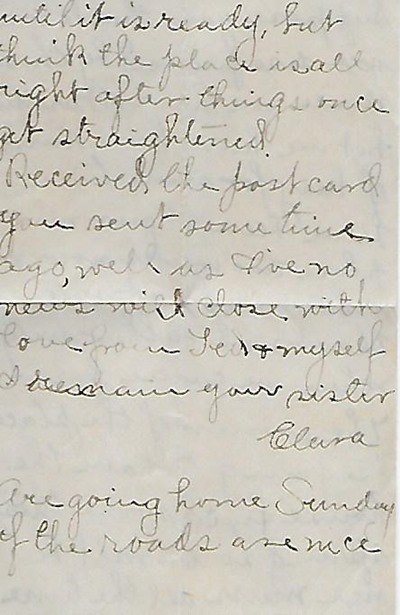 until it is ready, but
think the place is all
right after things once
get straightened
Received the post card
you sent some time
ago, well as I've no
news will close with
love from Ted & myself
I remain your sister
Clara
Are going home Sunday
if the roads are nice